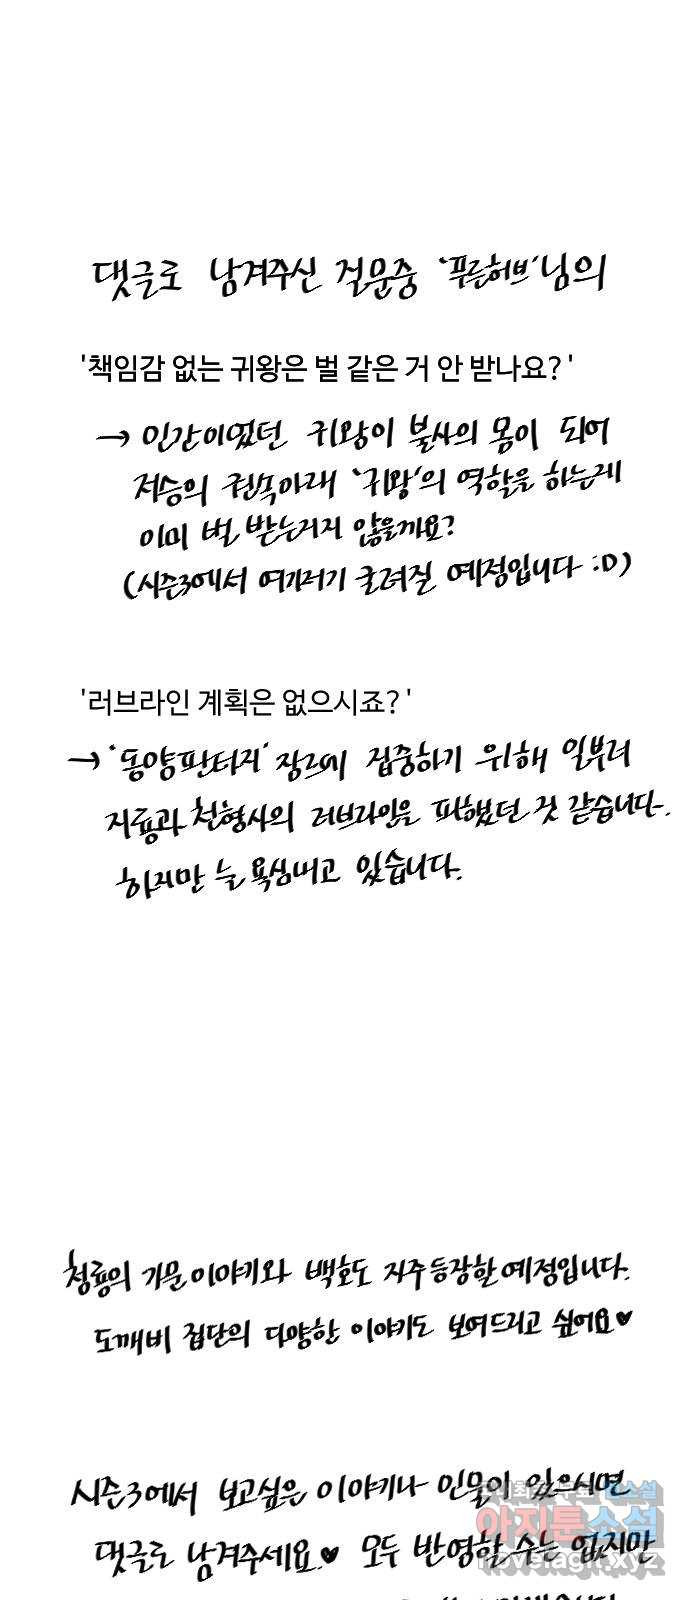 댓글로 남겨주신 질문중 '푸른허브'님의
'책임감 없는 귀왕은 벌 같은 거 안 받나요?'
→ 인간이었던 귀왕이 불사의 몸이 되어
저승의 권속아래 '귀왕'의 역할을 하는게
이미 벌 받는거지 않을까요?
(시즌3에서 여기저기 굴려질 예정입니다 :D)
'러브라인 계획은 없으시죠?'
→ '동양판타지' 장르에 집중하기 위해 일부러
지룡과 천형사의 러브라인을 피했던 것 같습니다.
하지만 늘 욕심내고 있습니다.
청룡의 가문 이야기와 백호도 자주 등장할 예정입니다.
도깨비 집단의 다양한 이야기도 보여드리고 싶어요♥
시즌3에서 보고싶은 이야기나 인물이 있으시면
댓글로 남겨주세요♥ 모두 반영할 수는 없지만
아지툰소설
novelagit.xyz